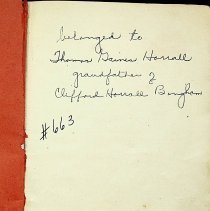 belonged to
Thomas Gaines Horrall
grandfather of
Clifford Horrall Bingham
#663